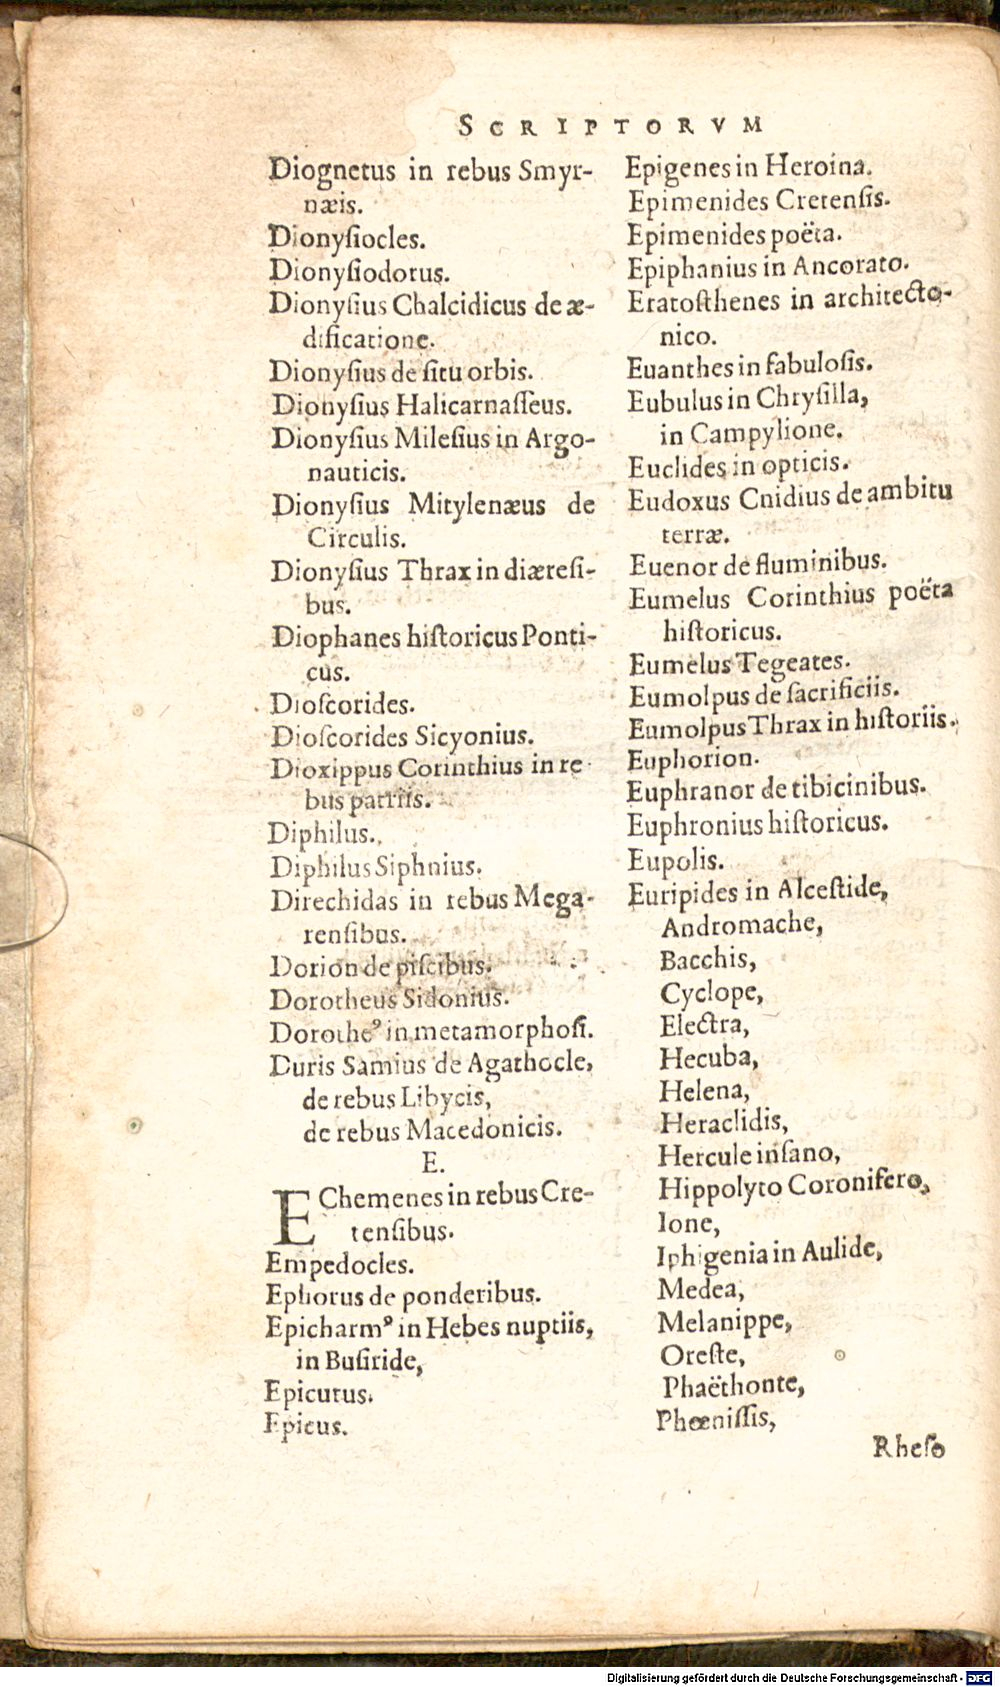 SCRIPTORVM
Diognetus in rebus Smyr-
næis.
Dionyſiocles.
Dionyſiodotus.
Dionyſius Chalcidicus de æ-
dificatione.
Dionyſius de ſitu orbis.
Dionyſius Halicarnaſſeus.
Dionyſius Mileſius in Argo-
nauticis.
Dionyſius Mitylenæus de
Circulis.
Dionyſius Thrax in diæreſi-
bus.
Diophanes hiſtoricus Ponti-
cus.
Dioſcorides.
Dioſcorides Sicyonius.
Dioxippus Corinthius in re-
bus patriis.
Diphilus.
Diphilus Siphnius.
Direchidas in rebus Mega-
renſibus.
Dorion de piſcibus.
Dorotheus Sidonius.
Dorotheꝰ in metamorphoſi.
Duris Samius de Agathocle,
de rebus Libycis,
de rebus Macedonicis.
E.
EChemenes in rebus Cre-
tenſibus.
Empedocles.
Ephorus de ponderibus.
Epicharmꝰ in Hebes nuptiis,
in Buſiride,
Epicurus.
Epicus.
Epigenes in Heroina.
Epimenides Cretenſis.
Epimenides poëta.
Epiphanius in Ancorato.
Eratoſthenes in architecto-
nico.
Euanthes in fabuloſis.
Eubulus in Chryſilla,
in Campylione.
Euclides in opticis.
Eudoxus Cnidius de ambitu
terræ.
Euenor de fluminibus.
Eumelus Corinthius poëta
hiſtoricus.
Eumelus Tegeates.
Eumolpus de ſacrificiis.
Eumolpus Thrax in hiſtoriis.
Euphorion.
Euphranor de tibicinibus.
Euphronius hiſtoricus.
Eupolis.
Euripides in Alceſtide,
Andromache,
Bacchis,
Cyclope,
Electra,
Hecuba,
Helena,
Heraclidis,
Hercule inſano,
Hippolyto Coronifero,
Ione,
Iphigenia in Aulide,
Medea,
Melanippe,
Oreſte,
Phaëthonte,
Phœniſſis,
Rheſo
Digitalisierung gefördert durch die Deutsche Forschungsgemeinschaft - DFG